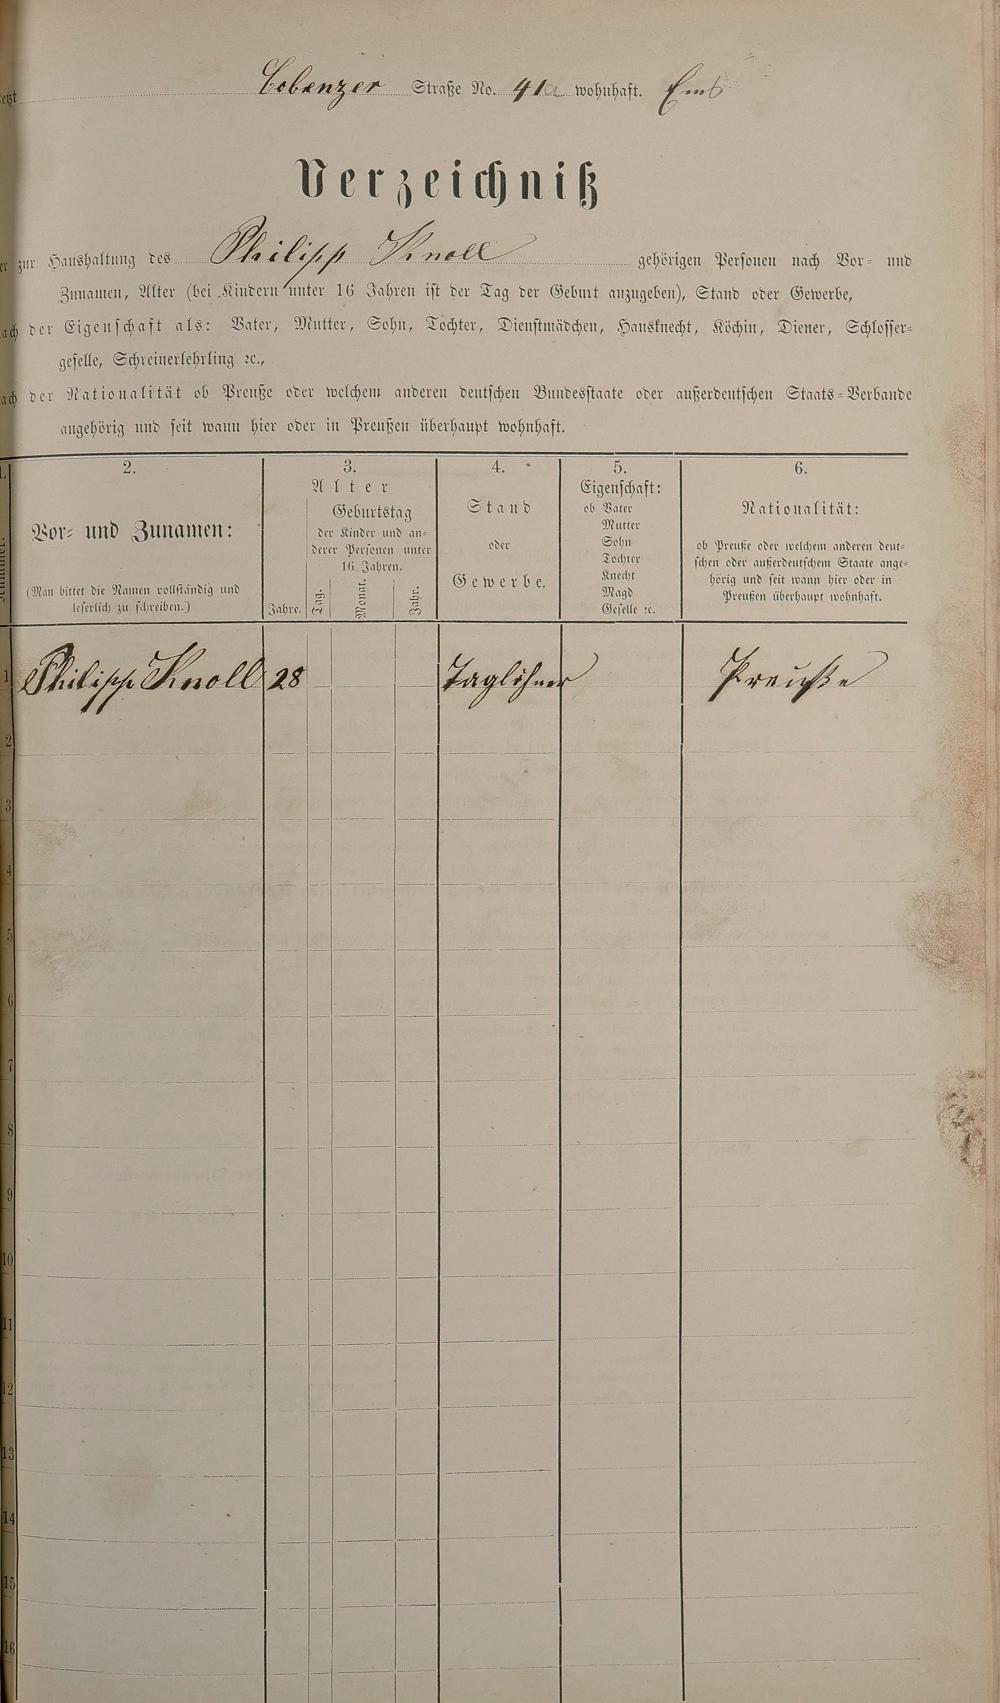 Cobenzer Straße No. 41a wohnhaft. Ems
Verzeichniß
zur Haushaltung des Philipp Knoll gehörigen Personen nach Vor- und
Zunamen, Alter (bei Kindern unter 16 Jahren ist der Tag der Geburt anzugeben), Stand oder Gewerbe,
der Eigenschaft als: Vater, Mutter, Sohn, Tochter, Dienstmädchen, Hausknecht, Köchin, Diener, Schlosser-
geselle, Schreinerlehrling ꝛc.,
der Nationalität ob Preuße oder welchem anderen deutschen Bundesstaate oder außerdeutschen Staats-Verbande
angehörig und seit wann hier oder in Preußen überhaupt wohnhaft.
2.
Vor- und Zunamen:
(Man bittet die Namen vollständig und
leserlich zu schreiben.)
3.
Alter
Geburtstag
der Kinder und an-
derer Personen unter
16 Jahren.
Jahre.
Tag.
Monat.
Jahr.
4.
Stand
oder
Gewerbe.
5.
Eigenschaft:
ob Vater
Mutter
Sohn
Tochter
Knecht
Magd
Geselle ꝛc.
6.
Nationalität:
ob Preuße oder welchem anderen deut-
schen oder außerdeutschem Staate ange-
hörig und seit wann hier oder in
Preußen überhaupt wohnhaft.
1 Philipp Knoll 28 Taglöhner Preuße
2
3
4
5
6
7
8
9
10
11
12
13
14
15
16